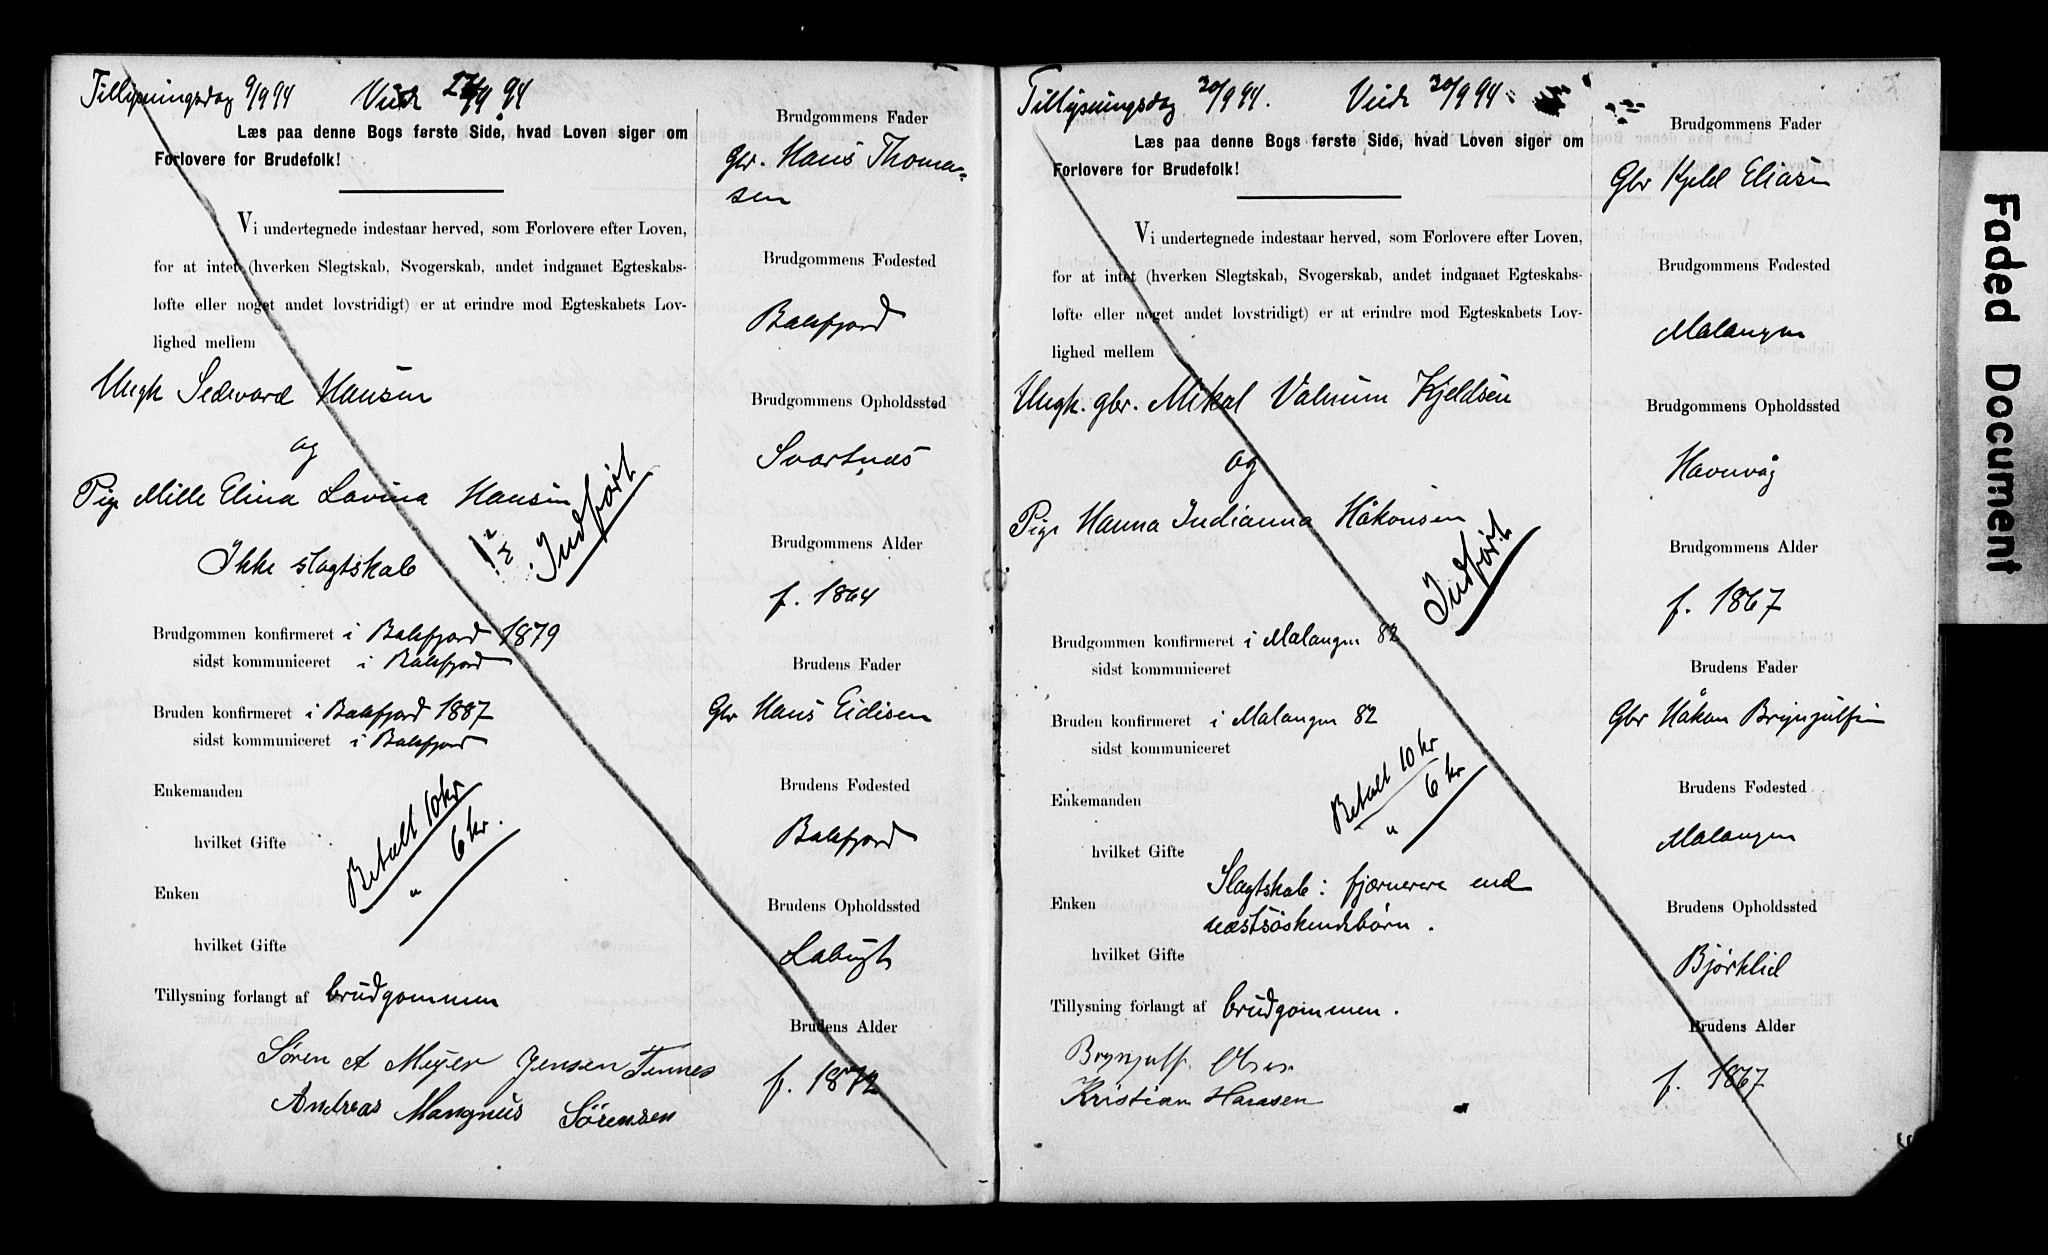 Tillysningsdag 9/9 94 Viede 27/9 94
Læs paa denne Bogs første Side, hvad Loven siger om
Forlovere for Brudefolk!
Vi undertegnede indestaar herved, som Forlovere efter Loven,
for at intet (hverken Slegtskab, Svogerskab, andet indgaaet Egteskabs-
løfte eller noget andet lovstridigt) er at erindre mod Egteskabets Lov-
lighed mellem
Ungk Sedevard Hansen
og
Pige Mille Elina Lovina Hansen
Ikke slagtskab
Indført
Brudgommen konfirmeret i Balsfjord 1879
sidst kommuniceret i Balsfjord
Bruden konfirmeret i Balsfjord 1887
sidst kommuniceret i Balsfjord
Enkemanden
hvilket Gifte
Betalt 10 kr
" 6 kr.
Enken
hvilket Gifte
Tillysning forlangt af brudgommen
Søren A Meyer Jensen Tennes
Andreas Mangnus Sørensen
Brudgommens Fader
Gbr. Hans Thoma-
sen
Brudgommens Fødested
Balsfjord
Brudgommens Opholdssted
Svartnæs
Brudgommens Alder
f. 1864
Brudens Fader
Gbr Hans Eidisen
Brudens Fødested
Balsfjord
Brudens Opholdssted
Labugt
Brudens Alder
f. 1872
Tillysningsdag 30/9 94. Viede 30/9 94
Læs paa denne Bogs første Side, hvad Loven siger om
Forlovere for Brudefolk!
Vi undertegnede indestaar herved, som Forlovere efter Loven,
for at intet (hverken Slegtskab, Svogerskab, andet indgaaet Egteskabs-
løfte eller noget andet lovstridigt) er at erindre mod Egteskabets Lov-
lighed mellem
Ungk. gbr. Mikal Valnum Kjeldsen
og
Pige Hanna Indianna Håkonsen
Indført
Brudgommen konfirmeret i Malangen 82
sidst kommuniceret
Bruden konfirmeret i Malangen 82
sidst kommuniceret
Betalt 10 kr
" 6 kr
Enkemanden
hvilket Gifte
Slagtskab: fjærnere end
Enken
næstsöskendebørn.
hvilket Gifte
Tillysning forlangt af brudgommen.
Brynjulf Olsen
Kristian Hansen
Brudgommens Fader
Gbr Kjeld Eliasen
Brudgommens Fødested
Malangen
Brudgommens Opholdssted
Havnvåg
Brudgommens Alder
f. 1867
Brudens Fader
Gbr Håkon Brynjulfsen
Brudens Fødested
Malangen
Brudens Opholdssted
Bjørklid
Brudens Alder
f. 1867
Faded Document